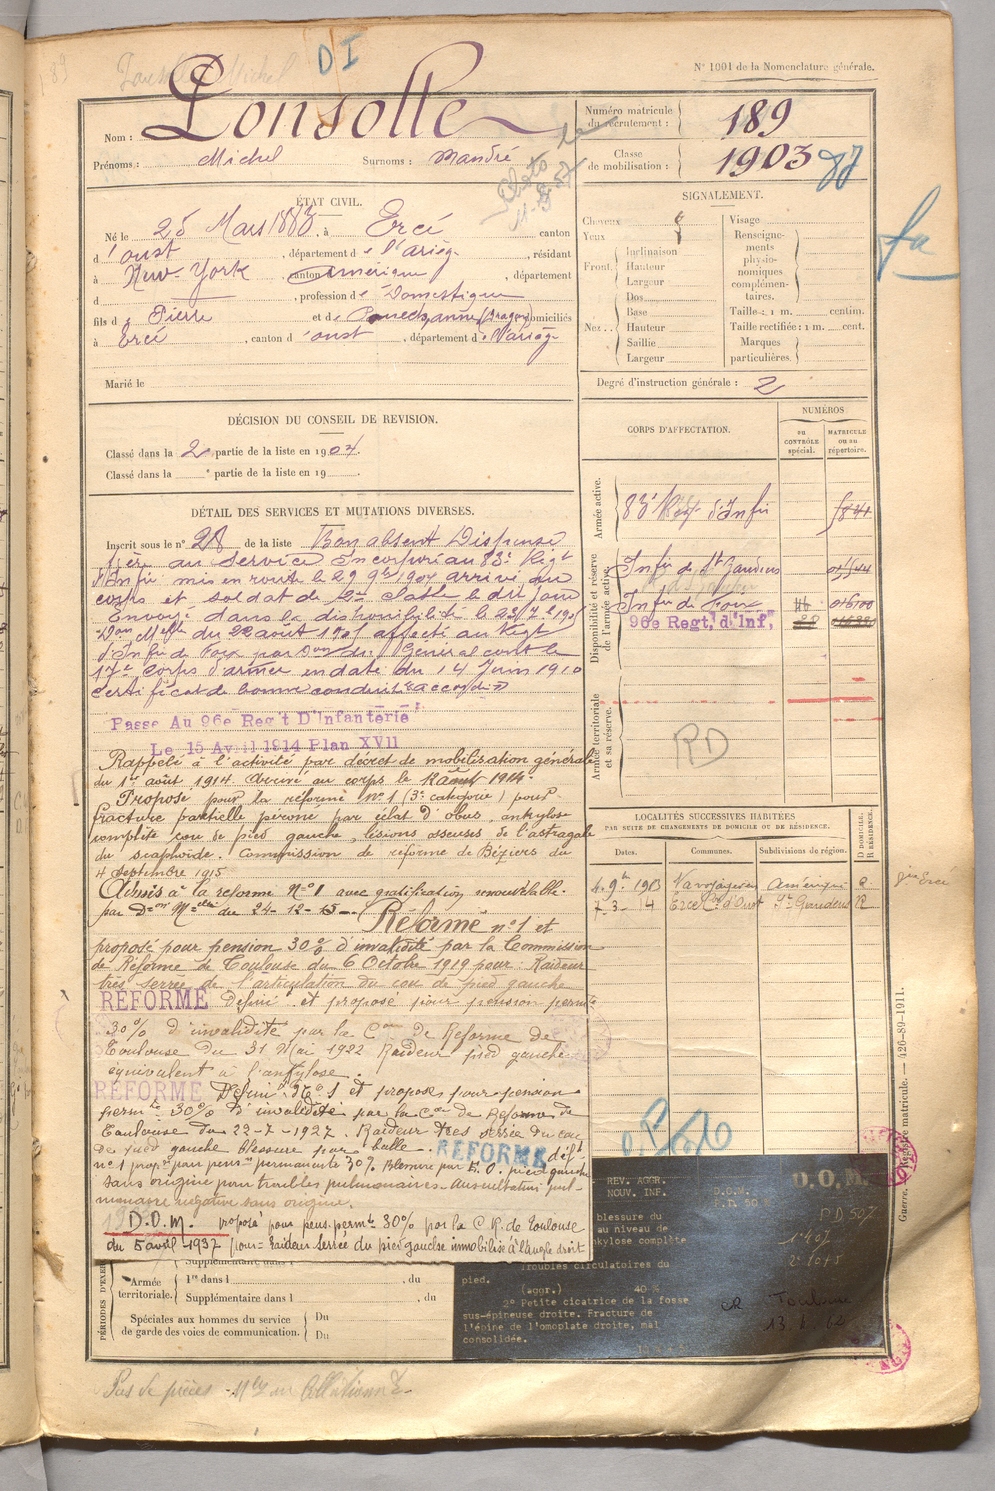 DI
N° 1001 de la Nomenclature générale.
Nom : Ponsolle
Prénoms : Michel Surnoms : Mandré
Numéro matricule du recrutement : 189
Classe de mobilisation : 1903
Photo le
ÉTAT CIVIL.
Né le 25 Mars 1883, à Ercé, canton
d'oust, département de l'Ariège, résidant
à New-York canton amérique, département
d, profession de Domestique
fils de Pierre et de domiciliés
à Ercé, canton d'oust, département de l'Ariège
Marié le
SIGNALEMENT.
Cheveux
Yeux
Front.
Inclinaison
Hauteur
Largeur
Dos
Nez..
Base
Hauteur
Saillie
Largeur
Visage
Renseignements physionomiques complémentaires.
Taille : 1 m. centim.
Taille rectifiée : 1 m. cent.
Marques particulières.
fa
Degré d'instruction générale : 2
DÉCISION DU CONSEIL DE REVISION.
Classé dans la 2e partie de la liste en 1904.
Classé dans la e partie de la liste en 19
CORPS D'AFFECTATION.
NUMÉROS
au CONTRÔLE spécial.
MATRICULE ou au répertoire.
Armée active.
83e Régt d'Infie
Disponibilité et réserve de l'armée active.
Infie de St Gaudens
Infie de Foix
96e Regt, d'Inf,
Armée territoriale et sa réserve.
RD
DÉTAIL DES SERVICES ET MUTATIONS DIVERSES.
Inscrit sous le n° 28 de la liste Bon absent Dispense
frère au service Incorporé au 83e Régt
d'Infie mis en route le 29 9bre 1904 arrivé au
corps et soldat de 2me classe le dit jour
Envoyé dans la disponibilité le
Don Melle du 22 aout affecté au Régt
d'Infie de Foix par Don du Général comt le
17e Corps d'armée en date du 14 Juin 1910
Certificat de bonne conduite accordé
Passe Au 96e Reg't D'Infanterie
Le 15 Avril 1914 Plan XVII
Rappelé à l'activité par décret de mobilisation générale
du 1er août 1914. Arrivé au corps le 12 août 1914.
Proposé pour la réforme n° 1 (3e catégorie) pour
fracture partielle péroné par éclat d'obus, ankylose
complète cou de pied gauche, lésions osseuses de l'astragale
du scaphoïde. Commission de réforme de Béziers du
4 septembre 1915
Admis à la réforme N° 1 avec gratification renouvelable.
par Don Melle du 24-12-15
Réformé n° 1 et
proposé pour pension 30% d'invalidité par la Commission
de Réforme de Toulouse du 6 Octobre 1919 pour : Raideur
très serrée de l'articulation du cou de pied gauche
RÉFORMÉ Définif et proposé pour pension permte
30% d'invalidité par la Con De Réforme de
Toulouse du 31 Mai 1922 Raideur pied gauche
équivalent à l'ankylose.
RÉFORMÉ Définif N° 1 et proposé pour pension
permte 30% d'invalidité par la Con de Réforme de
Toulouse du 22-7-1927. Raideur très serrée du cou
de pied gauche blessure par balle. RÉFORMÉ défif
n° 1 propé pour pension permanente 30% Blessure par E. O. pied gauche
sans origine pour troubles pulmonaires. Auscultation pul-
monaire négative sans origine.
D.O.M. proposé pour pens. permte 30% par la C.R. de Toulouse
du 5 avril 1937 pour : Raideur serrée du pied gauche immobilisé à l'angle droit
LOCALITÉS SUCCESSIVES HABITÉES
PAR SUITE DE CHANGEMENTS DE DOMICILE OU DE RÉSIDENCE.
Dates. Communes. Subdivisions de région. D DOMICILE. R RÉSIDENCE.
4 9bre 1913 Amérique R
7 3 14 Ercé Con d'Oust St Gaudens R
REV. AGGR.
NOUV. INF.
D.O.M.
P.D. 50 %
D.O.M.
PD 50%
blessure du
au niveau de
nkylose complète
Troubles circulatoires du
pied.
(aggr.) 40 %
2° Petite cicatrice de la fosse
sus-épineuse droite. Fracture de
l'épine de l'omoplate droite, mal
consolidée.
CR Toulouse
Supplémentaire dans l
Armée territoriale.
1re dans l, du
Supplémentaire dans l, du
Spéciales aux hommes du service de garde des voies de communication.
Du
Du
Guerre. Registre matricule. — 426-89-1911.
Pas de pièces